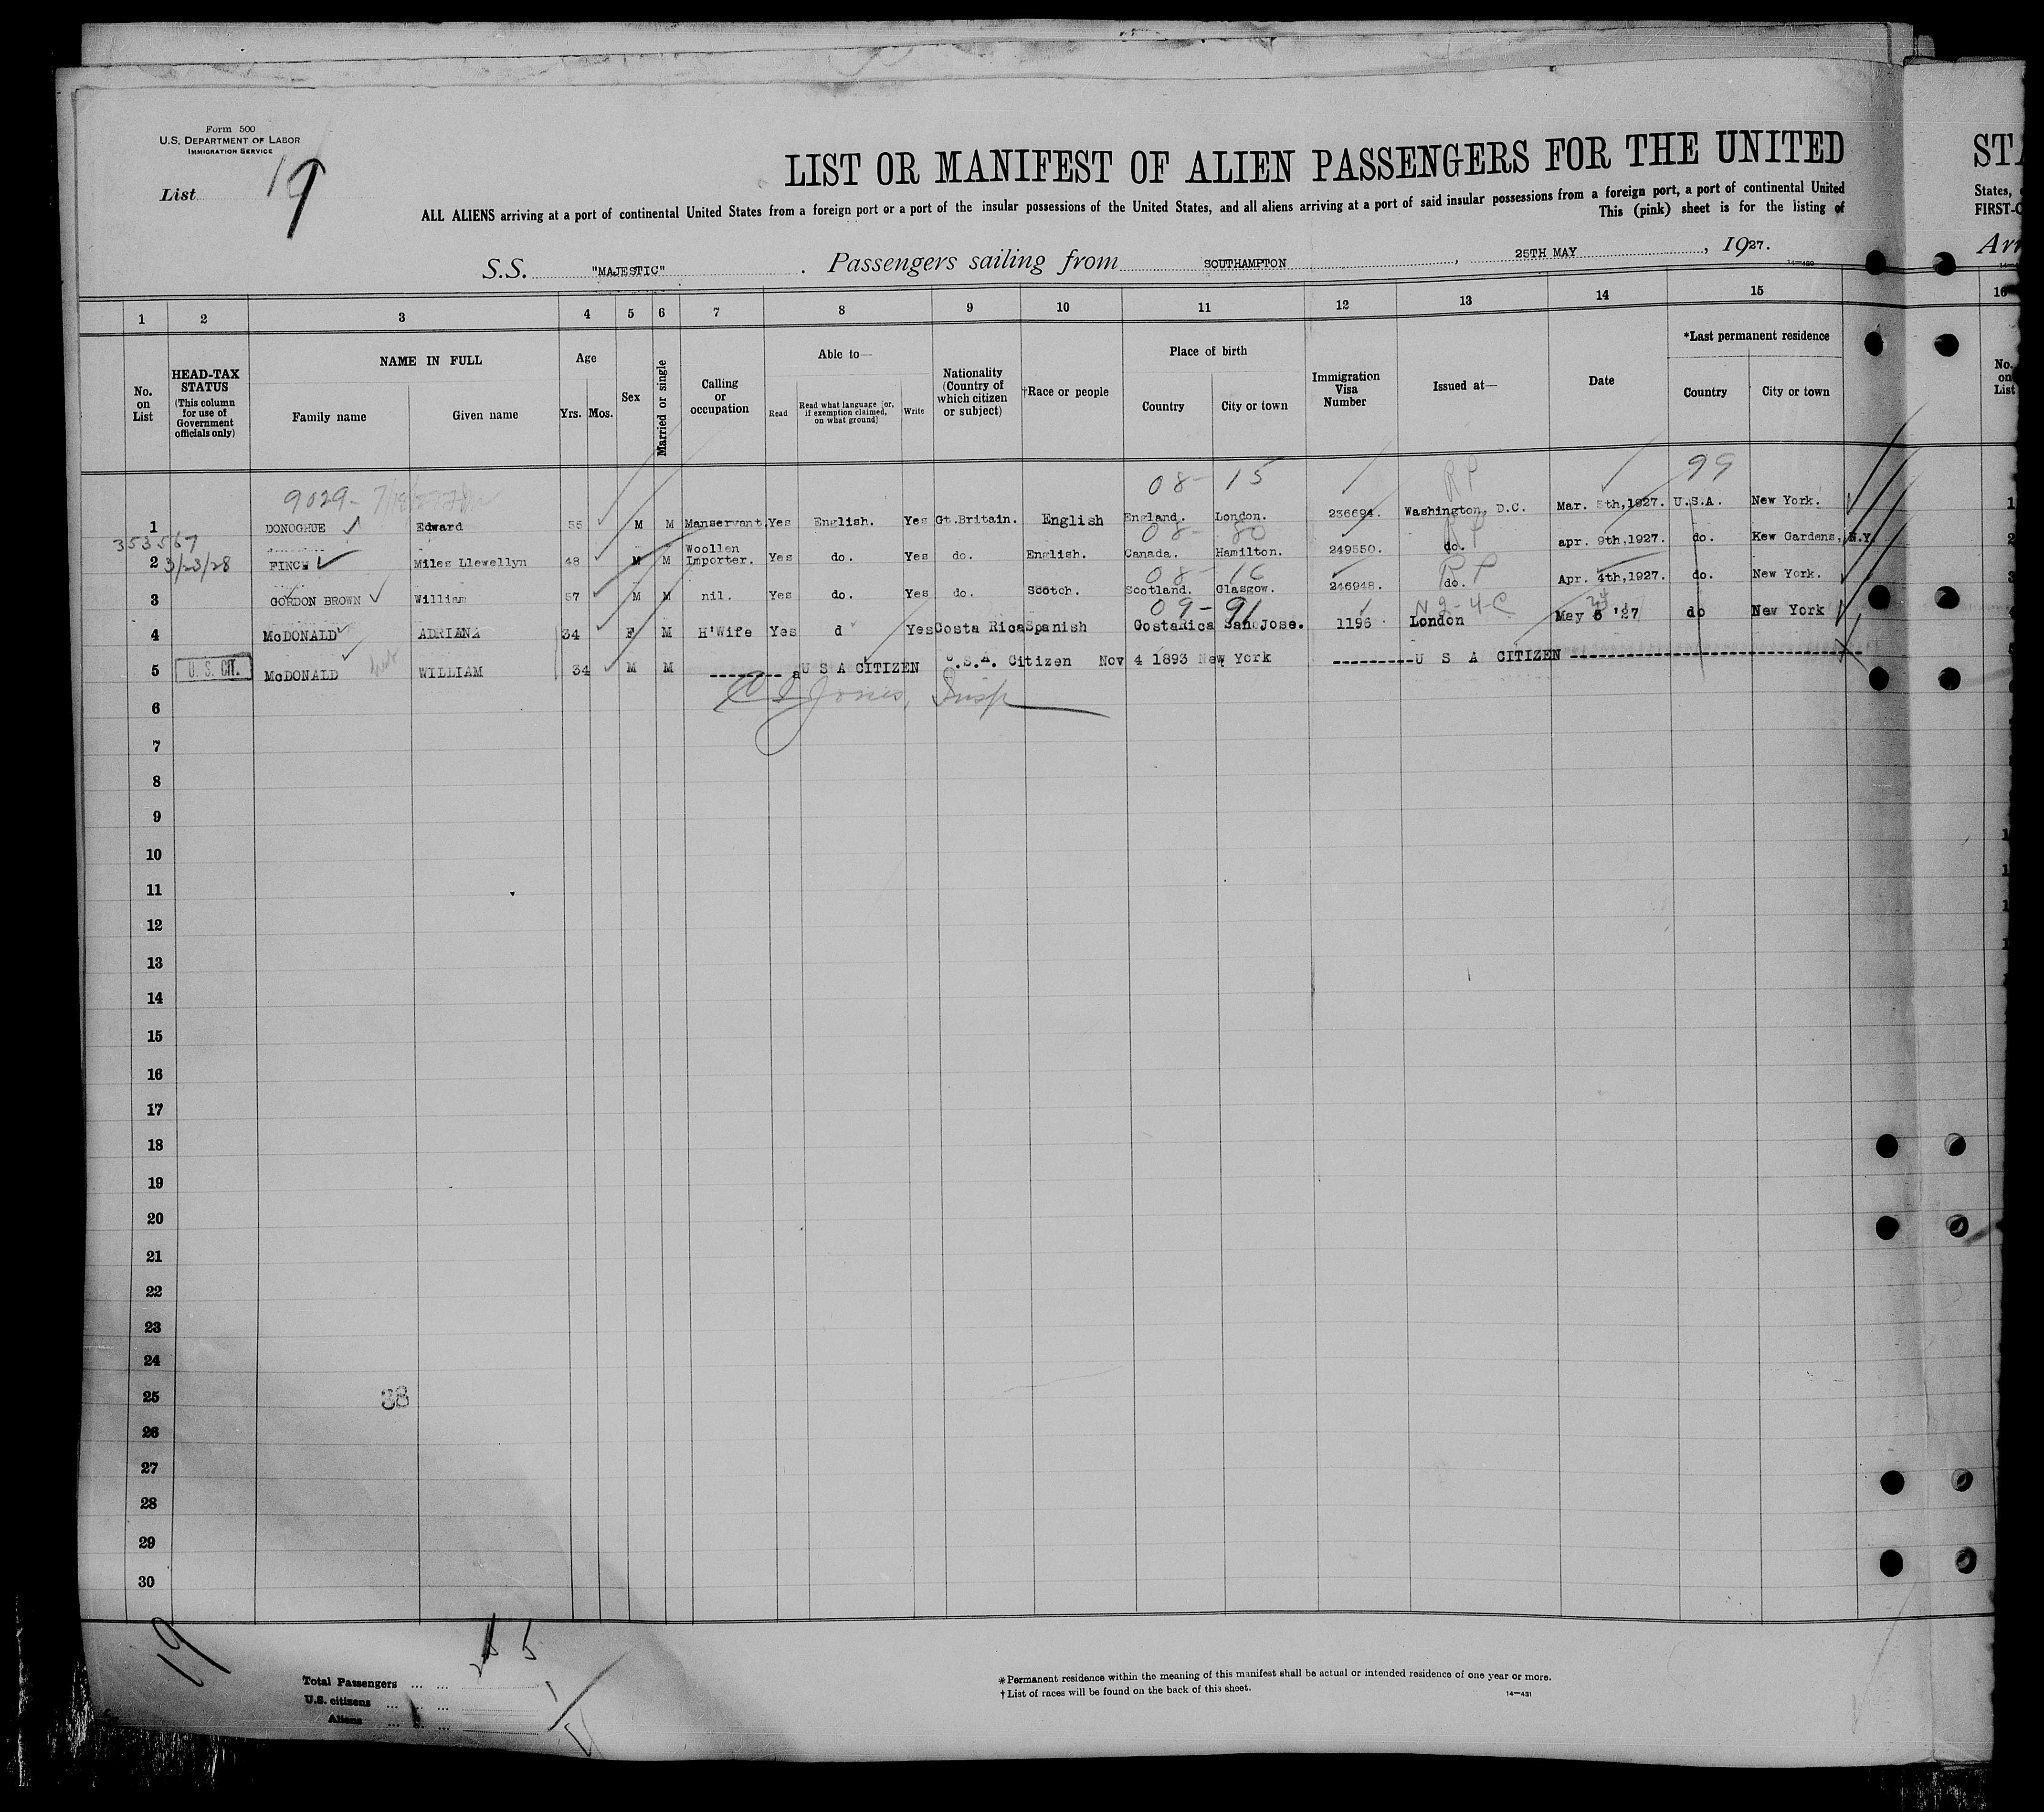 Form 500
U.S. DEPARTMENT OF LABOR
IMMIGRATION SERVICE
List 19
LIST OR MANIFEST OF ALIEN PASSENGERS FOR THE UNITED
ALL ALIENS arriving at a port of continental United States from a foreign port or a port of the insular possessions of the United States, and all aliens arriving at a port of said insular possessions from a foreign port, a port of continental United
This (pink) sheet is for the listing of
S.S. "MAJESTIC". Passengers sailing from SOUTHAMPTON, 25TH MAY, 1927.
14—480
STA
States,
FIRST-C
Arr
1 2 3 4 5 6 7 8 9 10 11 12 13 14 15 16
No. on List
HEAD-TAX STATUS (This column for use of Government officials only)
NAME IN FULL
Family name Given name
Age
Yrs. Mos.
Sex
Married or single
Calling or occupation
Able to—
Read Read what language [or, if exemption claimed, on what ground] Write
Nationality (Country of which citizen or subject)
†Race or people
Place of birth
Country City or town
Immigration Visa Number
Issued at—
Date
*Last permanent residence
Country City or town
No. on List
9029- 08- 15 RP 99
1 DONOGHUE Edward 55 M M Manservant. Yes English. Yes Gt.Britain. English England. London. 236694. Washington, D.C. Mar. 5th,1927. U.S.A. New York.
353567 08- 80 RP
2 3/23/28 FINCH Miles Llewellyn 48 M M Woollen Importer. Yes do. Yes do. English. Canada. Hamilton. 249550. do. apr. 9th,1927. do. Kew Gardens, N.Y.
08- 16 RP
3 GORDON BROWN William 57 M M nil. Yes do. Yes do. Scotch. Scotland. Glasgow. 246948. do. Apr. 4th,1927. do. New York.
09- 91 N2-4-C 24
4 McDONALD ADRIANA 34 F M H'Wife Yes d Yes Costa Rica Spanish CostaRica San Jose. 1196 London May 5 '27 do New York
5 U.S. CIT. McDONALD WILLIAM 34 M M -------- a U S A CITIZEN U.S.A. Citizen Nov 4 1893 New York ---------U S A CITIZEN --------------------------------
Jones, Insp
6
7
8
9
10
11
12
13
14
15
16
17
18
19
20
21
22
23
24
25 38
26
27
28
29
30
19
5
Total Passengers
U.S. citizens
Aliens
*Permanent residence within the meaning of this manifest shall be actual or intended residence of one year or more.
†List of races will be found on the back of this sheet.
14—431